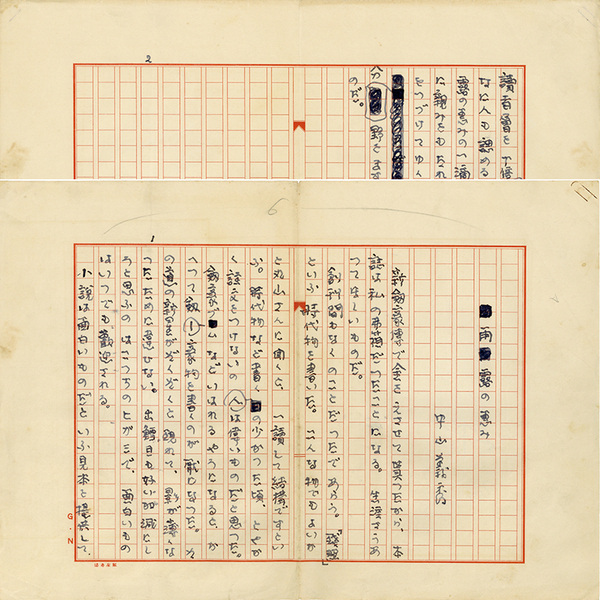 1
6
雨露の恵み
中山義秀
新劔豪傳で金をえさせて貰つたから、本
誌は私の米箱だつたことになる。生涯さうあ
つてほしいものだ。
創刊間もなくのことだつたであらう。「残照」
といふ時代物を書いた。こんな物でもよいか
と丸山さんに聞くと、一讀して結構ですとい
ふ。時代物など書く人の少かつた頃、とやか
く註文をつけないのは偉いものだと思つた。
劔豪ブームなどいはれるやうになると、か
へつて劔豪物を書くのが厭になつた。
の道の新星がぞくぞくと現れて、影が薄くな
つたために違ひない。出鱈目も好い加減にし
ろと思ふのはこつちのヒガミで、面白いもの
はいつでも歓迎される。
小説は面白いものだといふ見本を提供して、
G.N
2
讀者層を十倍
人も認める
露の恵みの一滴
た親みをもたれ
をつづけてゆく
分野をます
のだ。